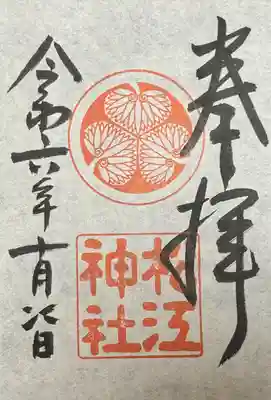 奉拝
松江
神社
令和六年十月 日